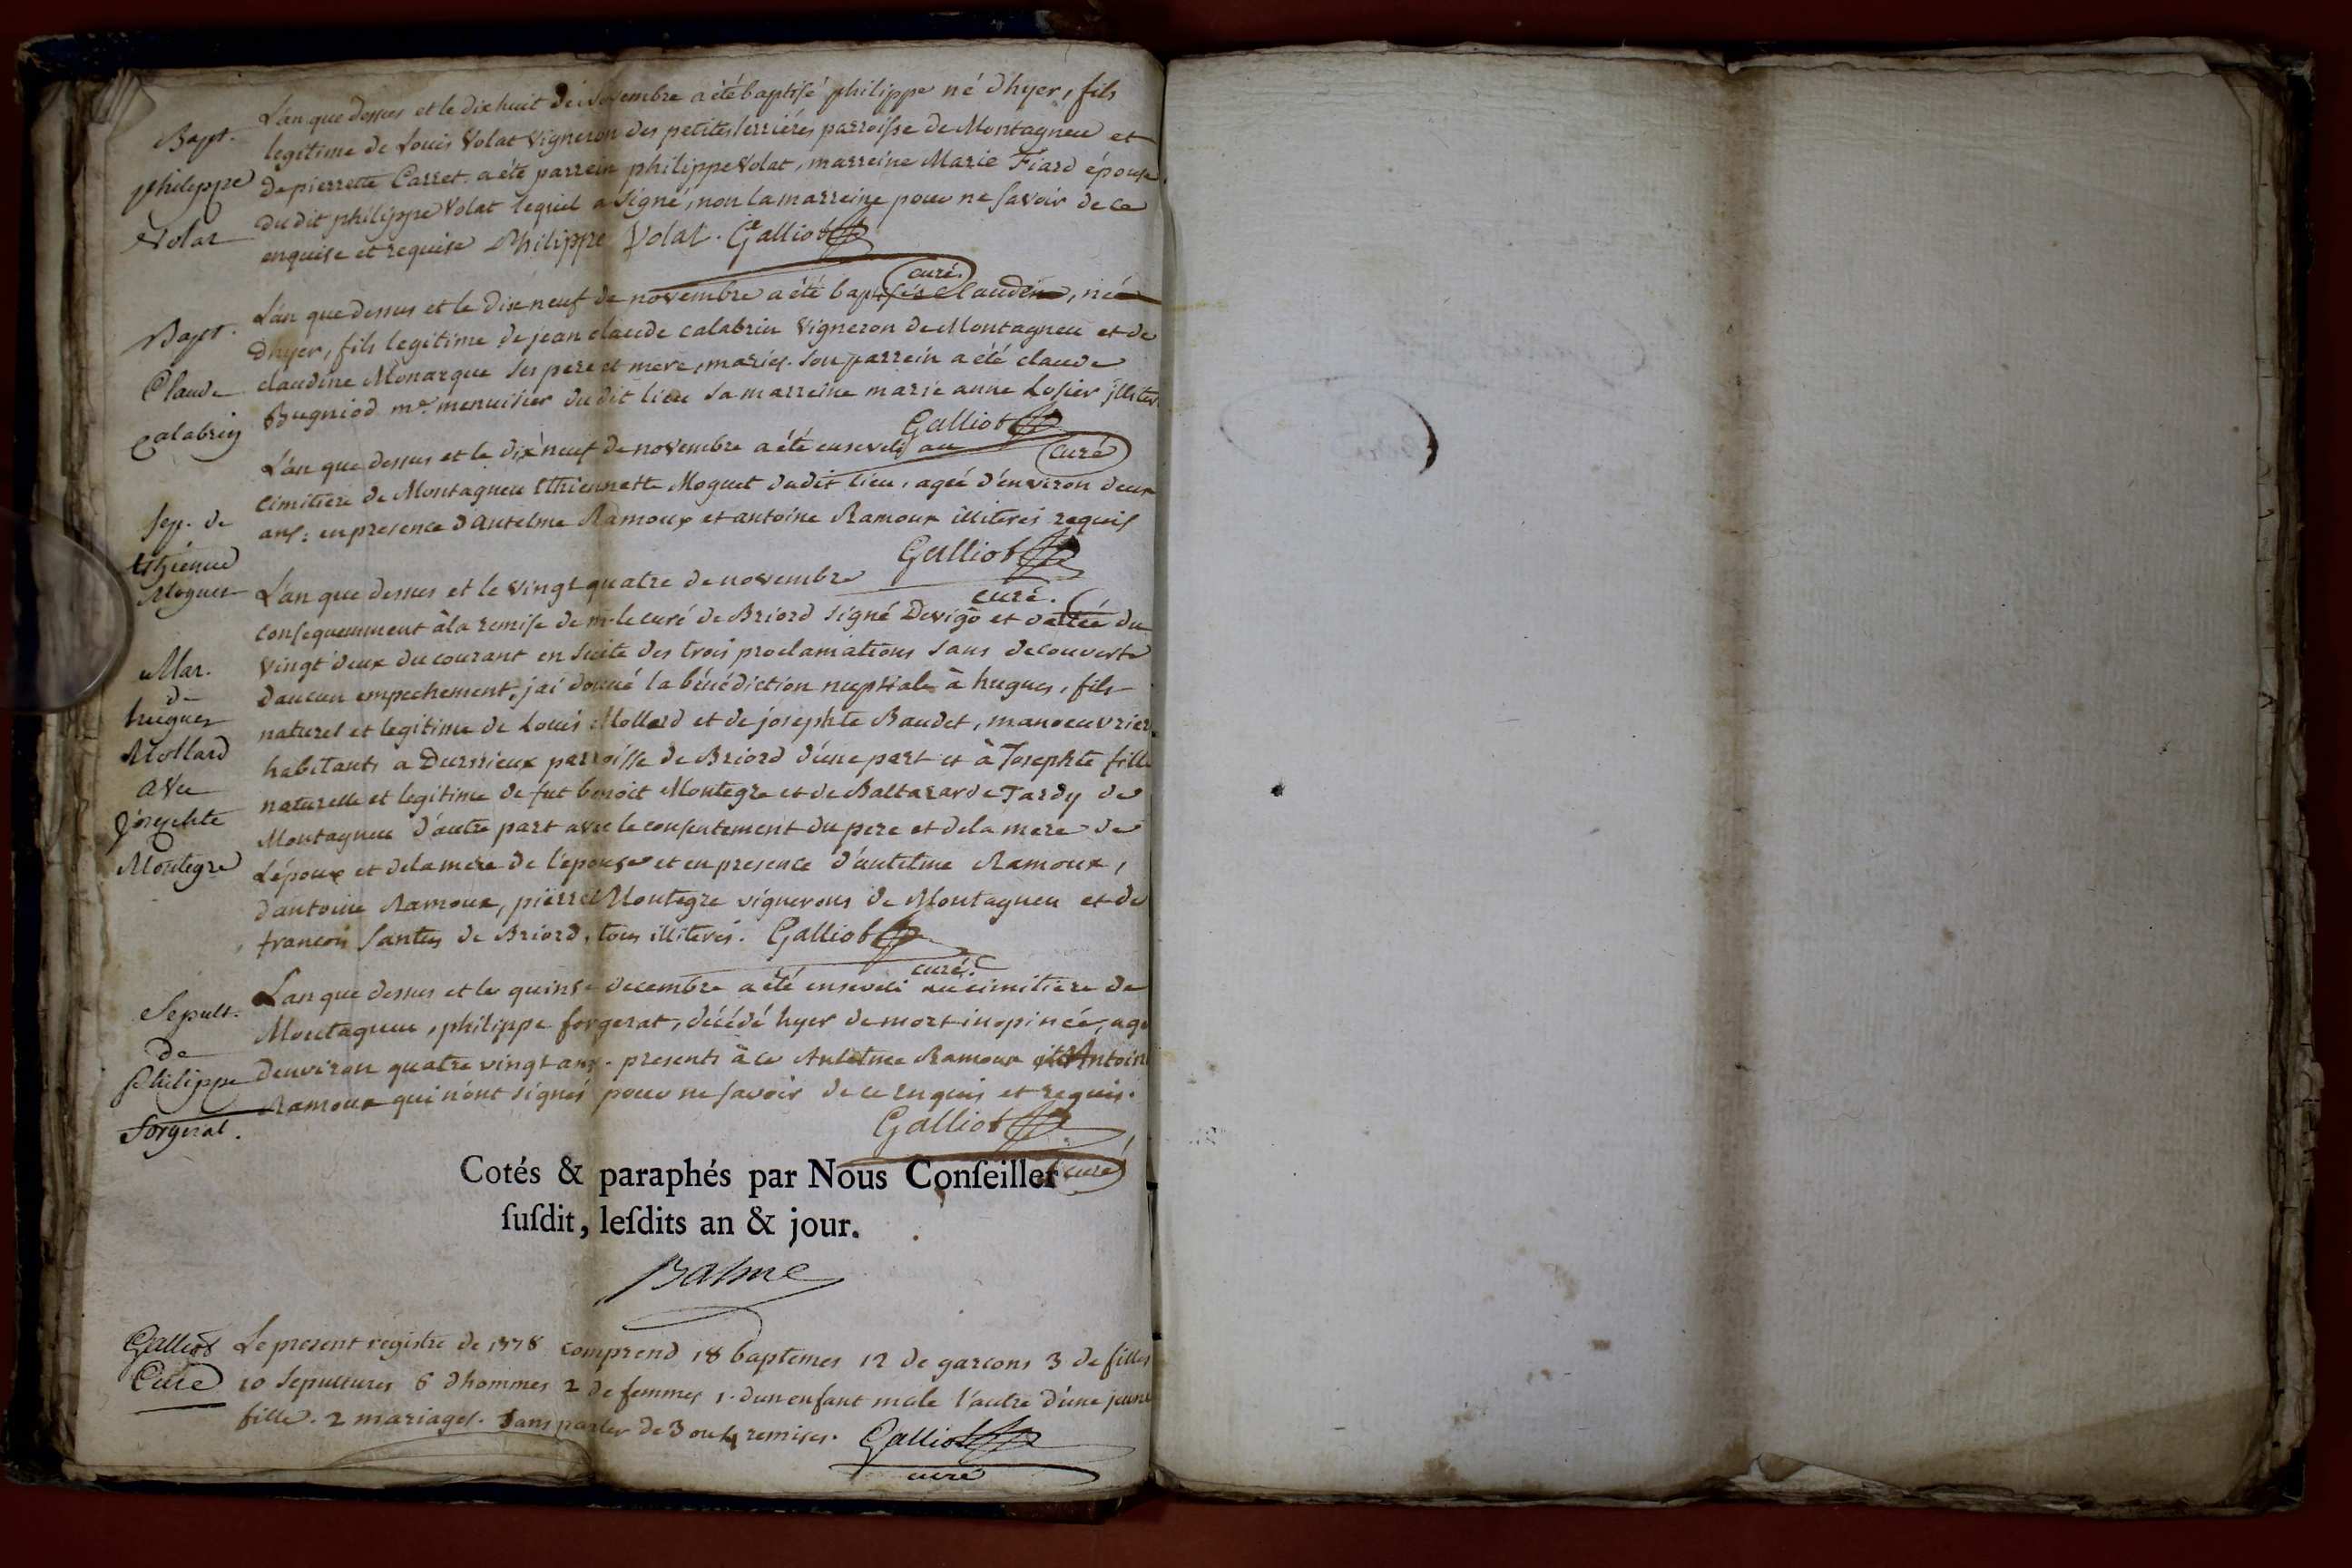 Bapt.
philippe
Volat
L'an que dessus et le dixhuit de Novembre a été baptisé philippe né dhyer, fils
legitime de Louis Volat Vigneron des petites serrières parroisse de Montagneu et
de pierrette Carret. a été parrein philippe Volat, marreine Marie Fiard épouse
dudit philippe Volat lequel a signé, non la marreine pour ne savoir de ce
enquise et requise Philippe Volat. Galliot
curé.
Bapt.
Claude
Calabrin
L'an que dessus et le dixneuf de novembre a été baptisés Claudein, née
dhyer, fils legitime de jean claude calabrin Vigneron de Montagneu et de
claudine Monarque ses pere et mere, mariés. son parrein a été claude
Bugniod me. menuisier dudit lieu sa marreine marie anne Losier illiter.
Galliot
curé
Sep. de
Ethienne
Moguet
L'an que dessus et le dixneuf de novembre a été enseveli au
cimitiere de Montagneu Ethiennette Moguet dudit lieu, agée d'environ deux
ans: en presence d'antelme Ramoux et antoine Ramoux illiterés requis
Galliot
curé.
Mar.
de
hugues
Mollard
avec
Josephte
Montegre
L'an que dessus et le vingt quatre de novembre
consequemment à la remise de mr. le curé de Briord signé Devigo et dattée du
vingt deux du courant en suite des trois proclamations sans decouverte
d'aucun empechement, jai donné la bénédiction nuptiale à hugues, fils
naturel et legitime de Louis Mollard et de josephte Baudet, manoeuvrier
habitants a Dursieux parroisse de Briord d'une part et à Josephte fille
naturelle et legitime de fut benoit Montegre et de Baltazarde Tardy de
Montagneu d'autre part avec le consentement du pere et dela mere de
L'époux et dela mere de l'epouse et en presence d'antelme Ramoux,
d'antoine Ramoux, pierre Montegre vignerons de Montagneu et de
francois Santus de Briord, tous illiterés. Galliot
curé.
Sepult.
de
Philippe
forgerat.
L'an que dessus et le quinze decembre a été enseveli au cimitiere de
Montagneu, philippe forgerat, décédé hyer de mort inopinée, agé
denviron quatre vingt ans. presents à ce Antelme Ramoux et Antoine
Ramoux qui n'ont signés pour ne savoir de ce enquis et requis.
Galliot
curé
Cotés & paraphés par Nous Conſeiller
ſuſdit, leſdits an & jour.
Balme
Galliot
Curé
Le present registre de 1778 comprend 18 baptemes 12 de garcons 3 de filles
10 sepultures 6 dhommes 2 de femmes 1. dun enfant male l'autre d'une jeune
fille. 2 mariages. sans parler de 3 ou 4 remises. Galliot
curé